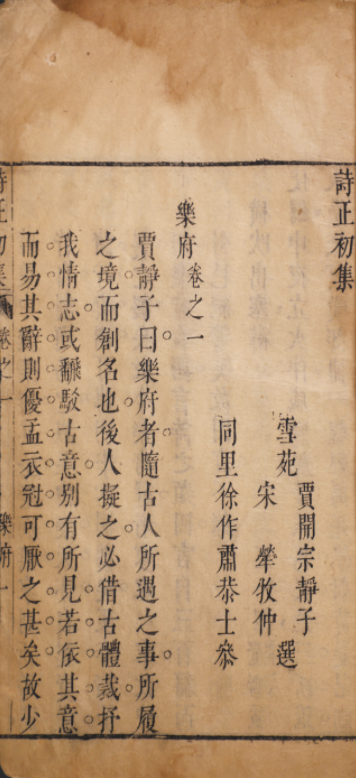 詩正初集
雪苑 賈開宗靜子
宋犖牧仲 選
同里徐作肅恭士叅
樂府卷之一
賈靜子曰樂府者隨古人所遇之事所履
之境而創名也後人擬之必借古體裁抒
我情志或翻駁古意别有所見若依其意
而易其辭則優孟衣冠可厭之甚矣故少
詩正初集 卷之一 樂府 一